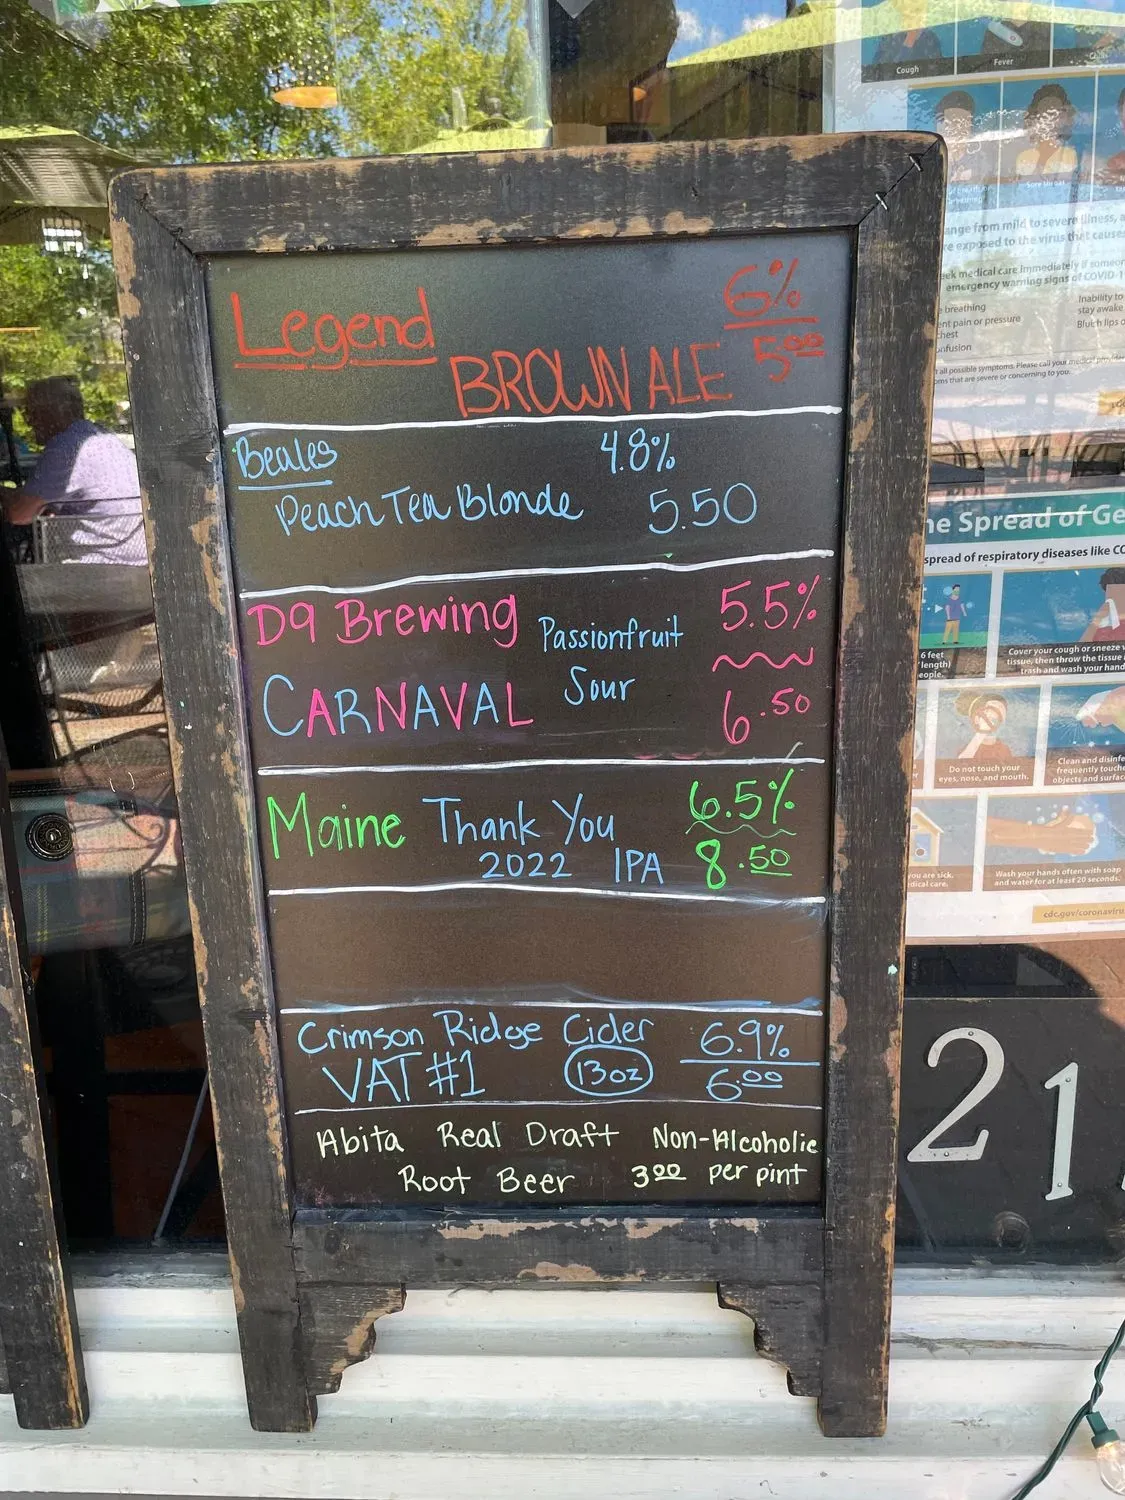 Legend 6%
BROWN ALE 5.00
Beales 4.8%
Peach Tea Blonde 5.50
D9 Brewing Passionfruit 5.5%
CARNAVAL Sour 6.50
Maine Thank You 6.5%
2022 IPA 8.50
Crimson Ridge Cider 6.9%
VAT #1 13oz 6.00
Abita Real Draft Non-Alcoholic
Root Beer 3.00 per pint
Cough
Fever
Sore throat
ange from mild to severe illness, a
re exposed to the virus that cause
eek medical care immediately if someo
emergency warning signs of COVID-1
breathing
ent pain or pressure
chest
onfusion
Inability to
stay awake
Bluish lips o
all possible symptoms. Please call your medical provider
oms that are severe or concerning to you.
he Spread of Ge
spread of respiratory diseases like CO
6 feet
length)
eople.
Cover your cough or sneeze w
tissue, then throw the tissue
trash and wash your hand
Do not touch your
eyes, nose, and mouth.
Clean and disinfe
frequently touche
objects and surfac
you are sick,
dical care.
Wash your hands often with soap
and water for at least 20 seconds.
cdc.gov/coronaviru
21